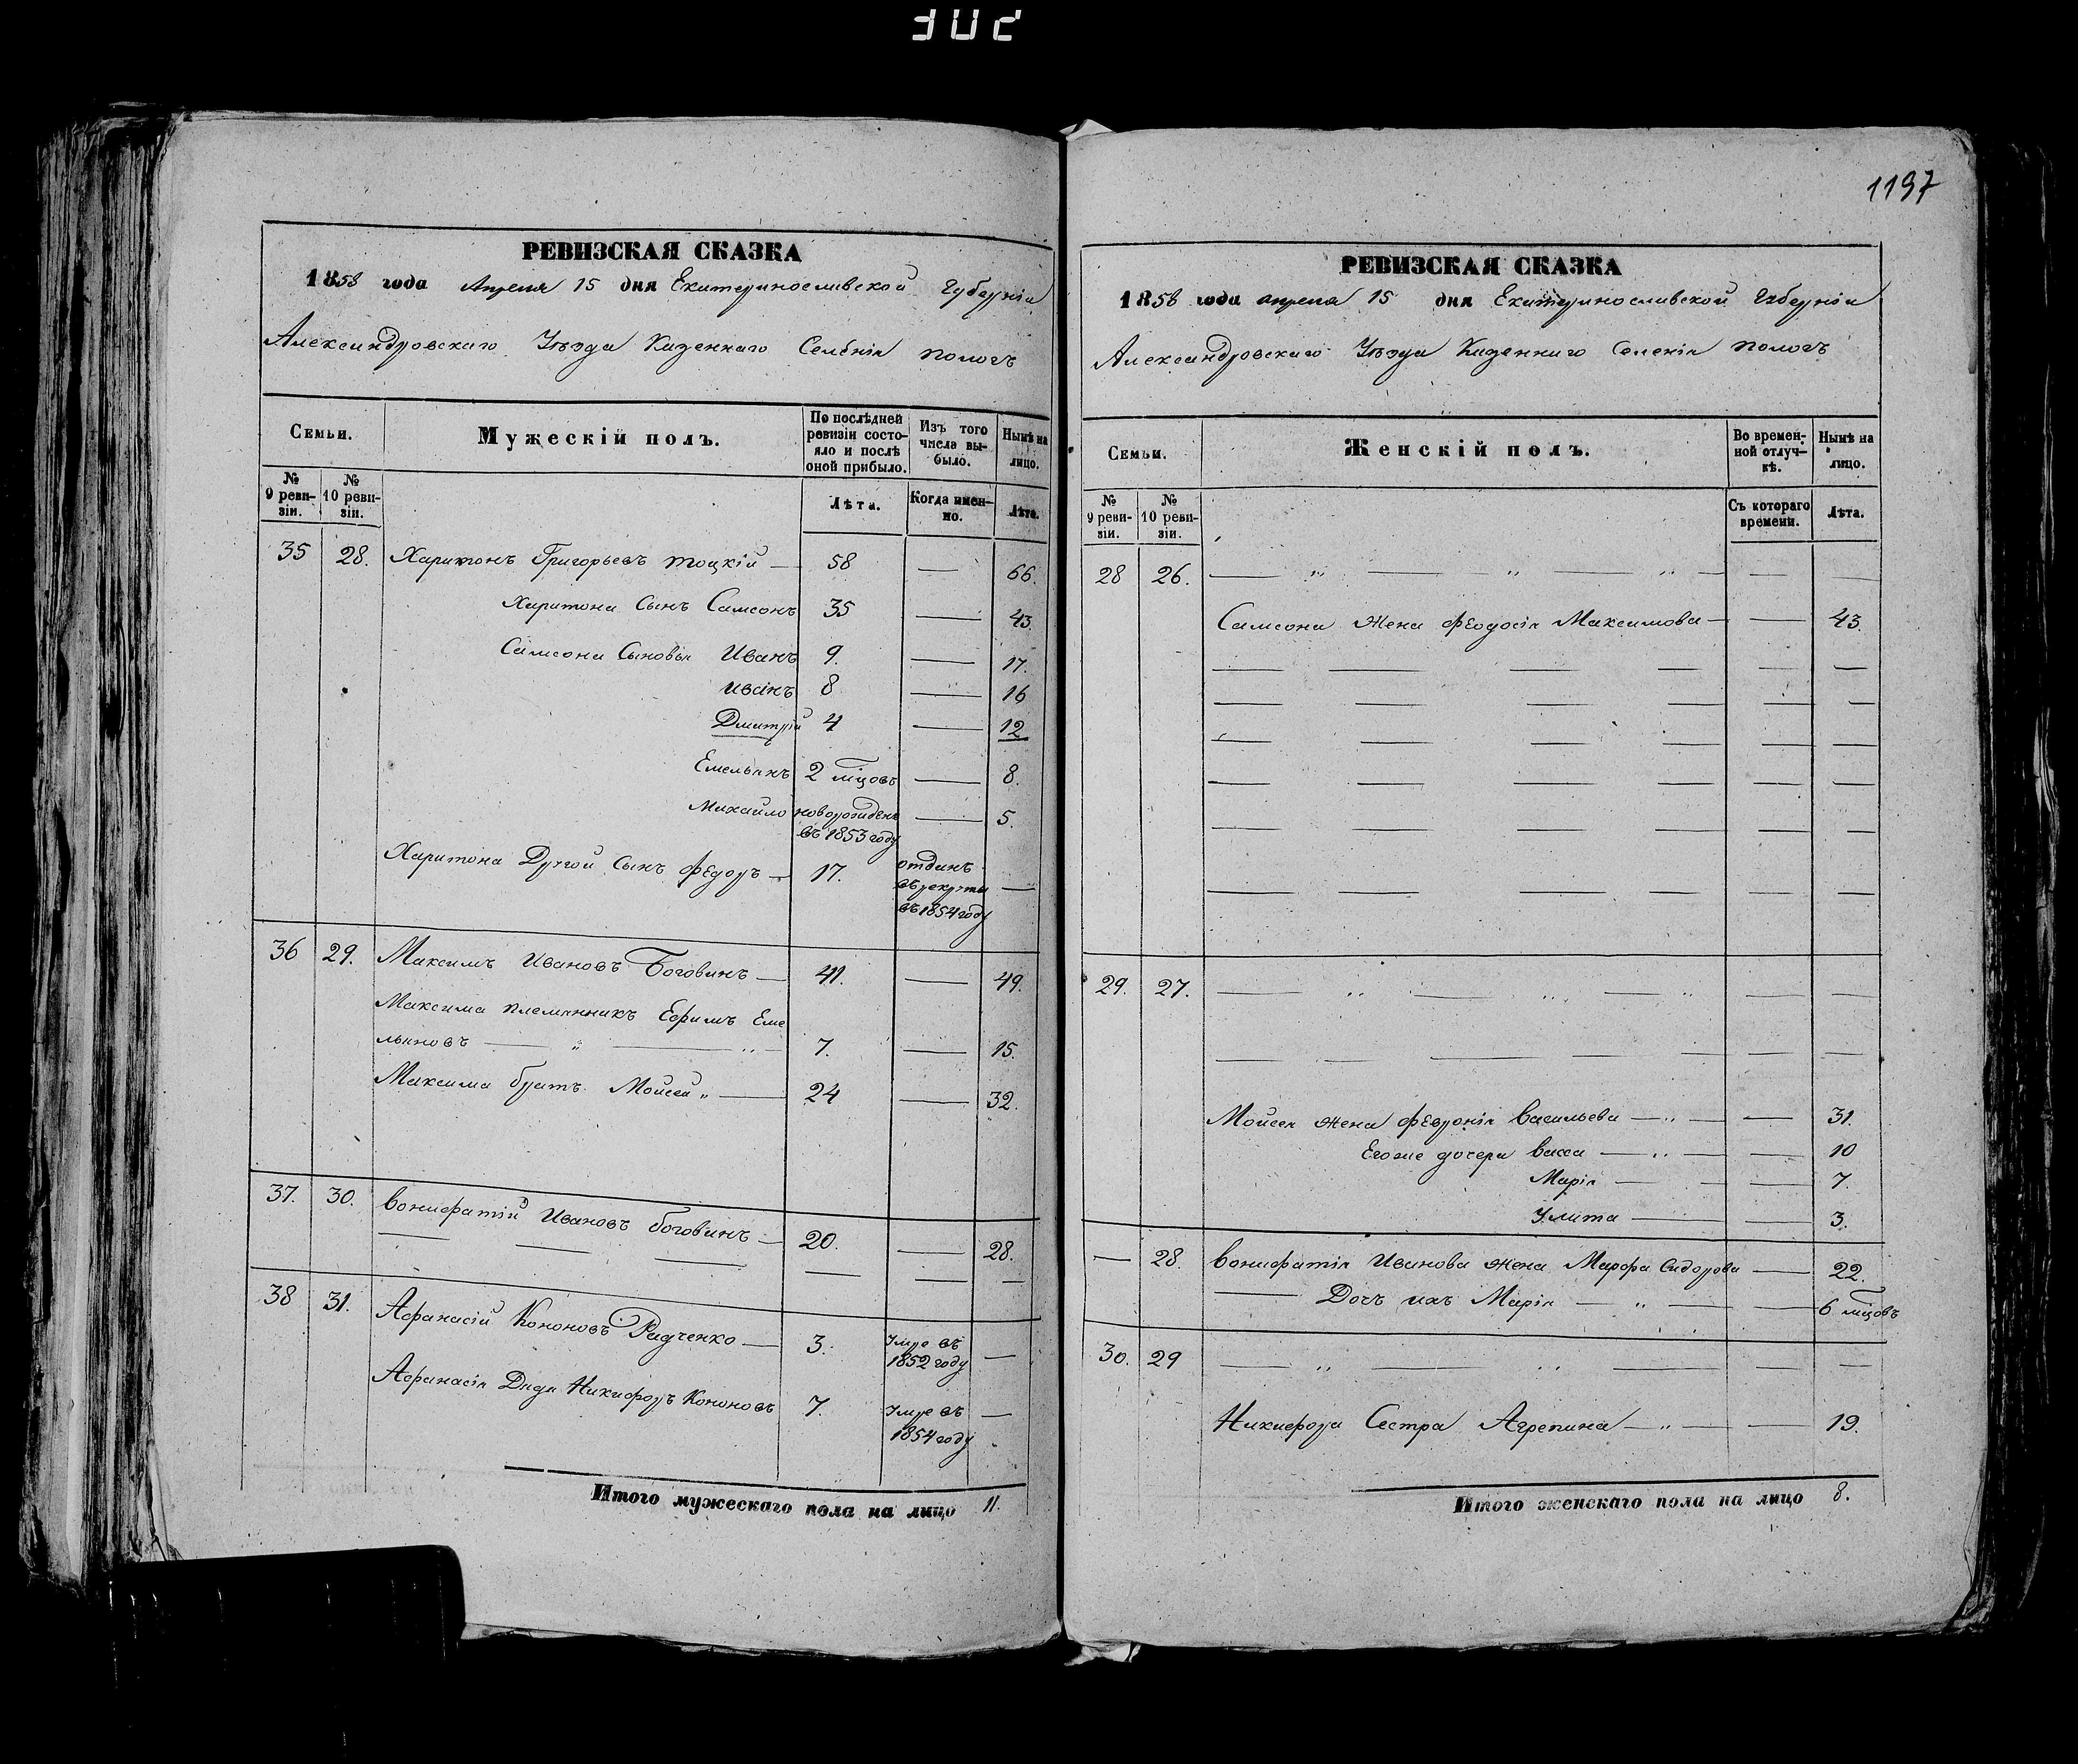 302
1197
РЕВИЗСКАЯ СКАЗКА
1858 года Апреля 15 дня Екатеринославской Губерніи
Александровскаго Уѣзда Казеннаго Селенія Пологъ
Семьи.
Мужескій полъ.
По послѣдней ревизіи состояло и послѣ оной прибыло.
Изъ того числа выбыло.
Нынѣ на лицо.
№ 9 ревизіи.
№ 10 ревизіи.
Лѣта.
Когда именно.
Лѣта.
35 28. Харитонъ Григорьевъ Тоцкій — 58 — 66.
Харитона Сынъ Самсонъ 35 — 43.
Самсона Сыновья Иванъ 9. — 17.
Иванъ 8 — 16
Дмитрій 4 — 12
Емельянъ 2 мѣцовъ — 8.
Михайло новорожденъ въ 1853 году — 5.
Харитона Другой Сынъ Федоръ — 17. отданъ въ рекруты въ 1854 году —
36 29. Максимъ Ивановъ Боговинъ — 41. — 49.
Максима племянникъ Ефимъ Еме
льяновъ — „ — „ — 7. — 15.
Максима братъ Мойсей „ — 24 — 32.
37. 30. Вонифатій Ивановъ Боговинъ — 20. — 28.
— — — — — —
38 31. Афанасій Кононовъ Радченко — 3. Умре въ 1852 году —
Афанасія Дядя Никифоръ Кононовъ 7. Умре въ 1854 году —
Итого мужескаго пола на лицо 11.
РЕВИЗСКАЯ СКАЗКА
1858 года апреля 15 дня Екатеринославской Губерніи
Александровскаго Уѣзда Казеннаго Селенія Пологъ
Семьи.
Женскій полъ.
Во временной отлучкѣ.
Нынѣ на лицо.
№ 9 ревизіи.
№ 10 ревизіи.
Съ котораго времени.
Лѣта.
28 26. — „ — „ — „ — — —
Самсона Жена Феодосія Максимова — — 43.
— — — — — —
— — — — — —
— — — — — —
— — — — — —
— — — — — —
— — — — — —
29. 27. — „ — „ — „ — —
— — — — — — —
Мойсея жена Февронія Васильева — „ — — 31.
Егоже дочери Васса — „ — — 10
Марія — — — 7.
Улита — — 3.
— 28. Вонифатія Иванова жена Марфа Сидорова — 22.
— Дочь ихъ Марія — „ — — 6 мѣцовъ
30. 29 — „ — „ — — —
Никифора Сестра Агрепина — „ — — 19.
Итого женскаго пола на лицо 8.